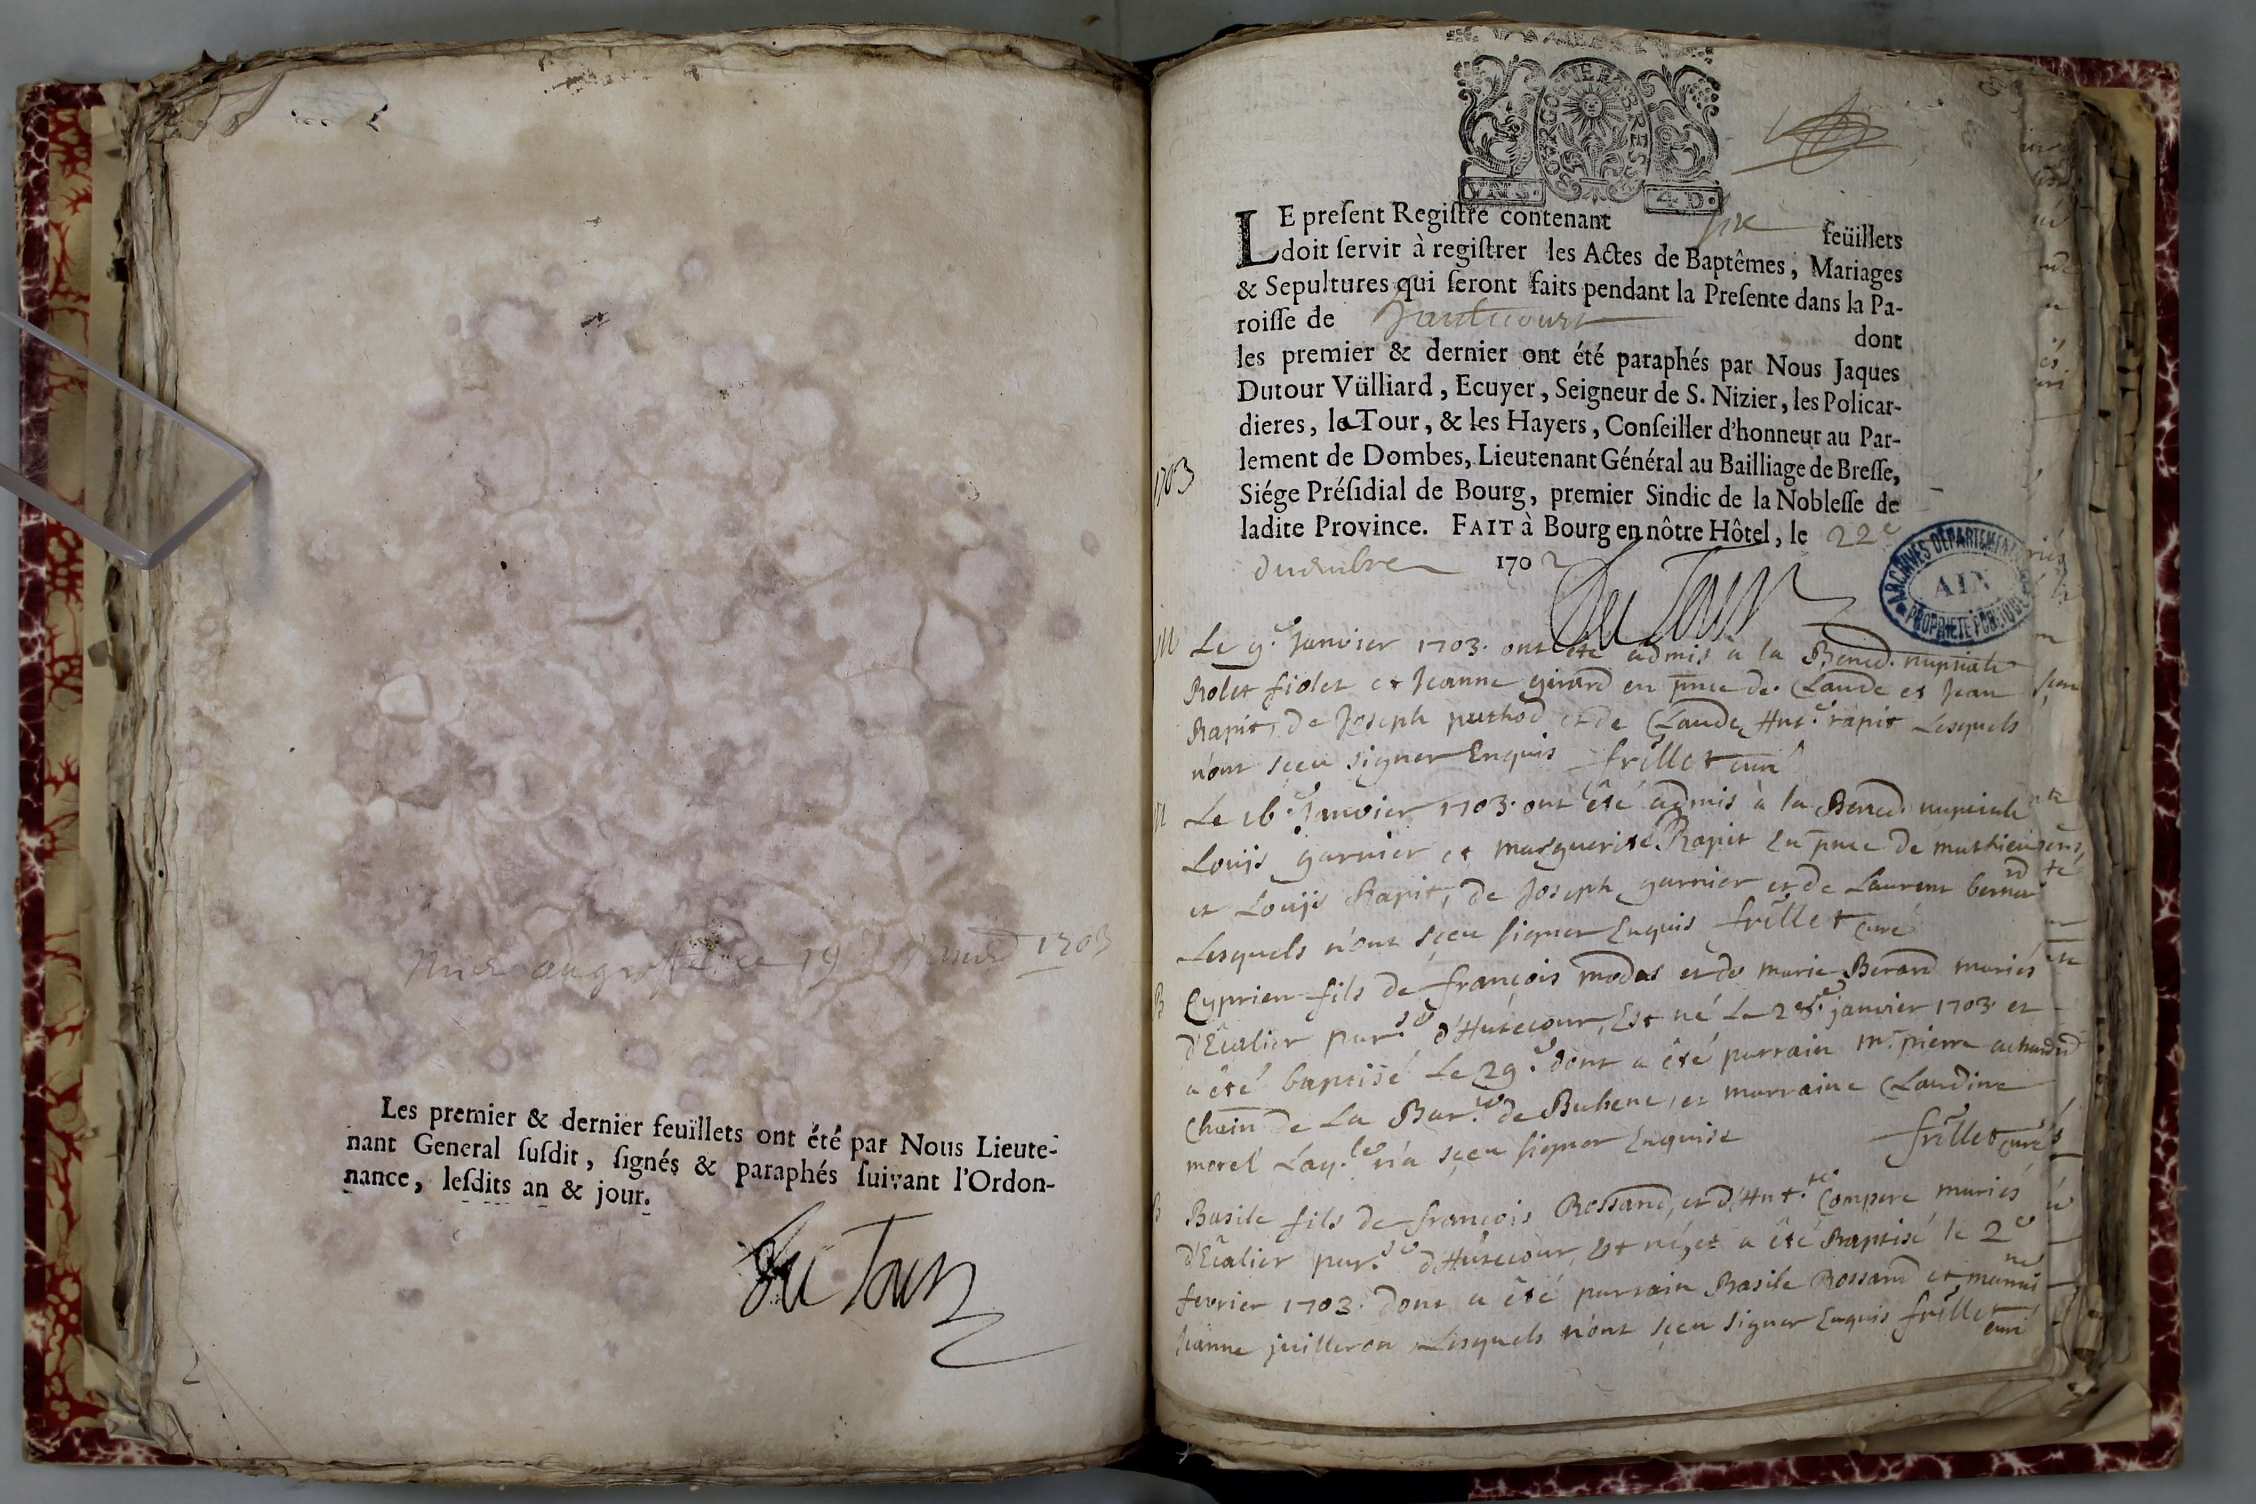 Mis au greffe ce 19 1703
Les premier & dernier feuillets ont été par Nous Lieute-
nant General suſdit, ſignés & paraphés ſuivant l'Ordon-
nance, leſdits an & jour.
Du Tour
BOURGOGNE ET BRESSE
4 D.
LE preſent Regiſtre contenant six feüillets
doit ſervir à regiſtrer les Actes de Baptêmes, Mariages
& Sepultures qui ſeront faits pendant la Preſente dans la Pa-
roiſſe de hautecourt dont
les premier & dernier ont été paraphés par Nous Jaques
Dutour Vülliard, Ecuyer, Seigneur de S. Nizier, les Policar-
dieres, la Tour, & les Hayers, Conſeiller d'honneur au Par-
lement de Dombes, Lieutenant Général au Bailliage de Breſſe,
Siége Préſidial de Bourg, premier Sindic de la Nobleſſe de
ladite Province. FAIT à Bourg en nôtre Hôtel, le 22e
decembre 1702
Du Tour
ARCHIVES DÉPARTEMENTALES
AIN
PROPRIÉTÉ PUBLIQUE
1703
M Le 9.e Janvier 1703. ont été admis à la Bened. nuptiale
Rolet fiolet et Jeanne girard en pnce de Claude et Jean
Rapit, de Joseph puthod et de Claude Ant.e rapit Lesquels
n'ont sçeu signer Enquis frillet curé
M Le 16.e Janvier 1703. ont été admis à la Bened. nuptiale
Louis garnier et marguerite Rapit En pnce de mathieu
et Louis Rapit, de Joseph garnier et de Laurent bernard
Lesquels n'ont sçeu signer Enquis frillet curé
B Cyprien fils de françois modas et de marie Berard mariés
d'Eualier par.se d'Hutecour, Est né Le 28.e janvier 1703. et
a été baptisé Le 29.e dont a été parrain m.r pierre achard
Chain de La Bar.ie de Buhene, et marraine Claudine
morel Laq.le n'a sçeu signer Enquise frillet curé
B Basile fils de françois Rossand, et d'Ant.te Compere mariés
d'Eualier par.se d'Hutecour, Est né, et a été Baptisé le 2e
fevrier 1703. dont a été parrain Basile Rossand et marne
Jeanne juilleron Lesquels n'ont sçeu signer Enquis frillet curé